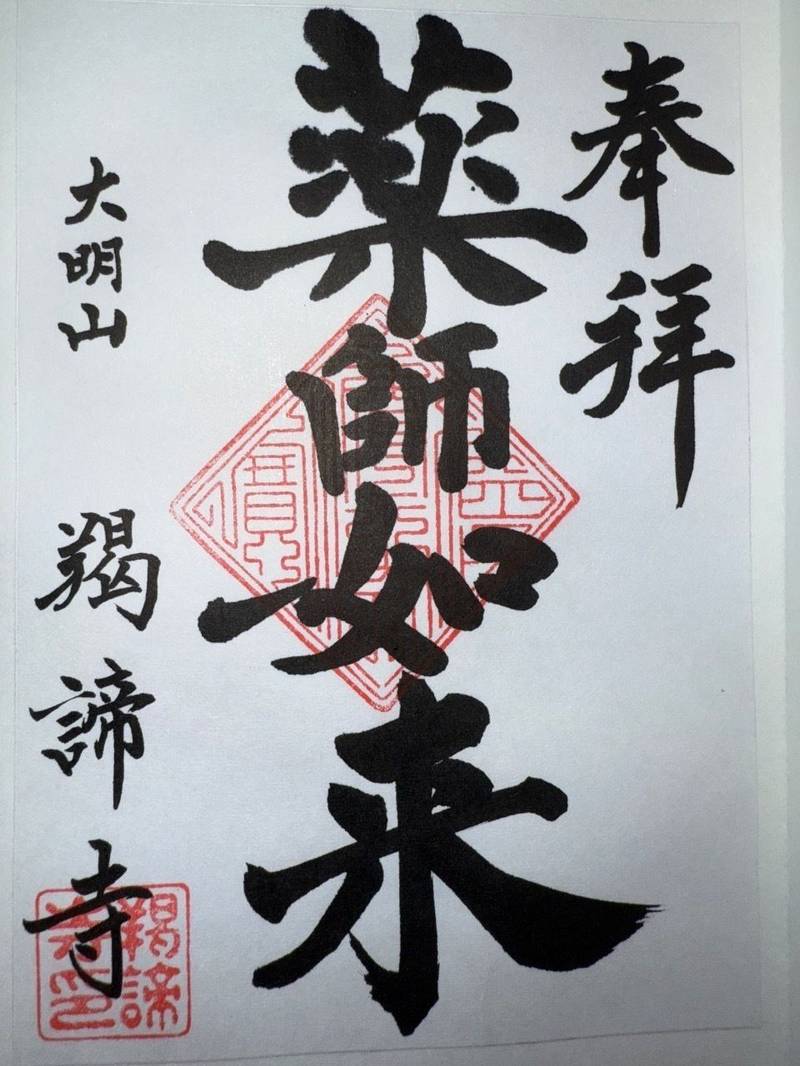 奉拝
薬師如来
大明山
羯諦寺
羯諦
寺印